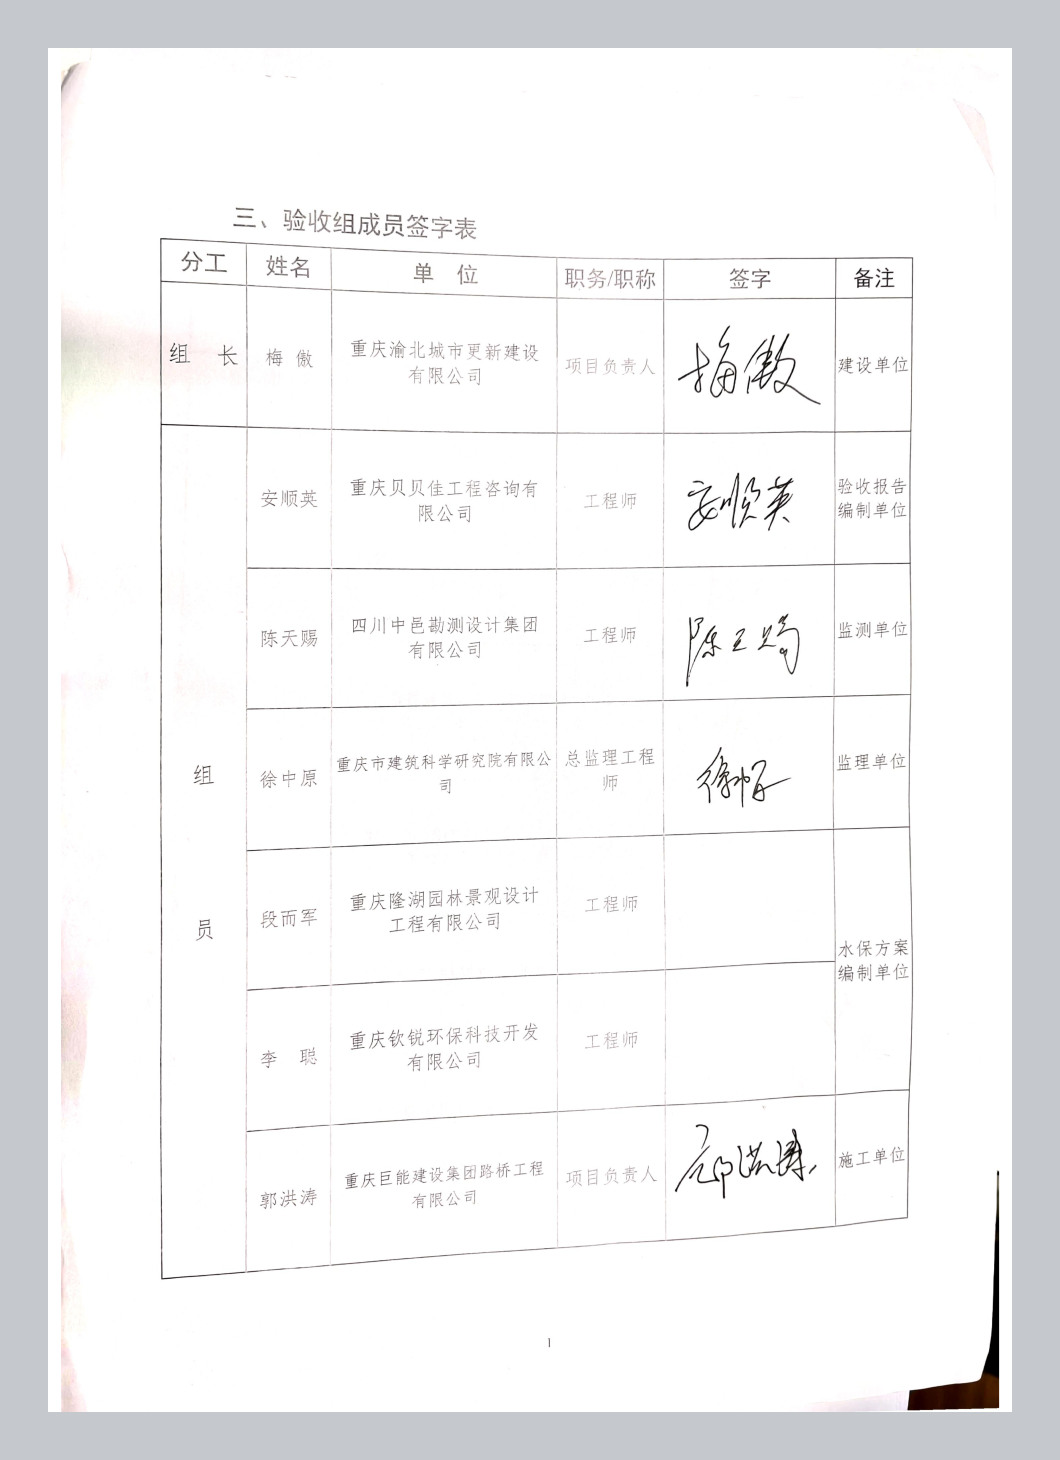 三、验收组成员签字表
分工 姓名 单 位 职务/职称 签字 备注
组 长 梅 傲 重庆渝北城市更新建设
有限公司 项目负责人 梅傲 建设单位
安顺英 重庆贝贝佳工程咨询有
限公司 工程师 安顺英 验收报告
编制单位
陈天赐 四川中邑勘测设计集团
有限公司 工程师 陈天赐 监测单位
组 徐中原 重庆市建筑科学研究院有限公
司 总监理工程
师 徐中原 监理单位
员 段而军 重庆隆湖园林景观设计
工程有限公司 工程师
水保方案
编制单位
李 聪 重庆钦锐环保科技开发
有限公司 工程师
郭洪涛 重庆巨能建设集团路桥工程
有限公司 项目负责人 郭洪涛 施工单位
1